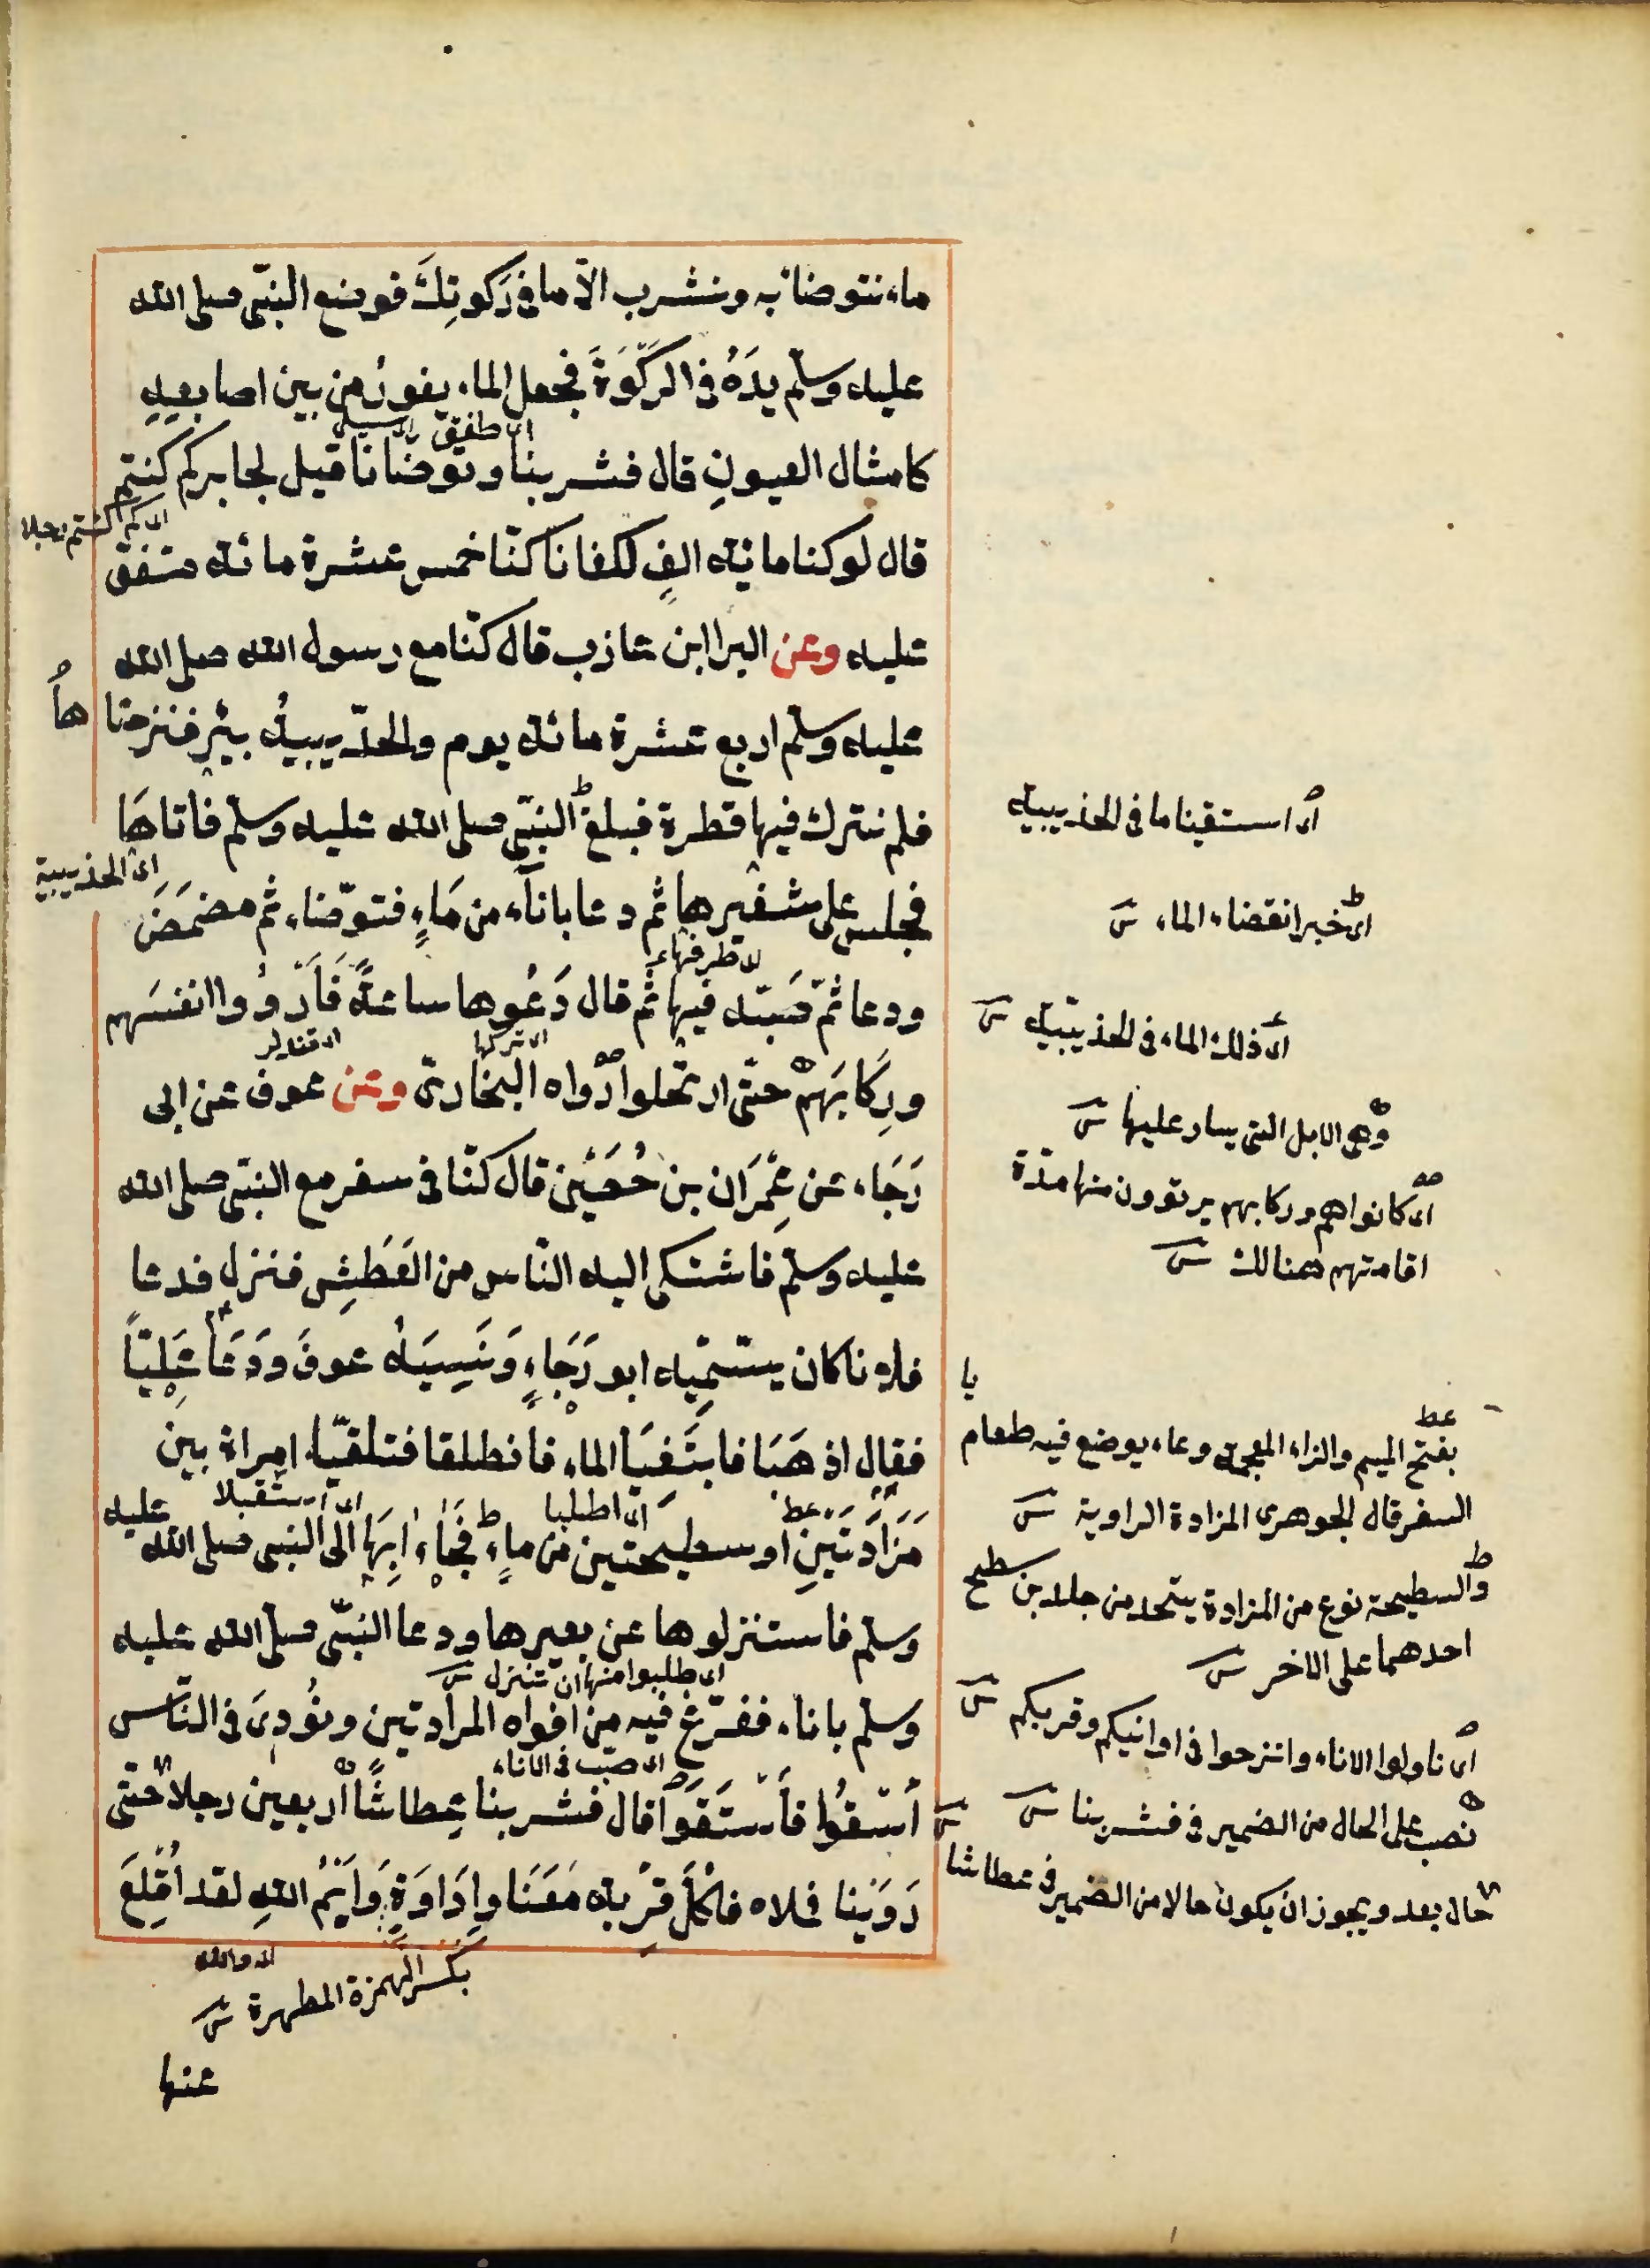 ماء نتوضأ به ونشرب الّا ما في رَكوتِكَ فوضع النبّي صلى الله
عليه وسلّم يدَهُ في الرّكْوَةَ فجعل الماء يفورُ من بين اصابعِهِ
اى طفق
كامثال العيونِ قال فشربنا وتوضّأنا قيل لجابر كم كنتم
اى كم كنتم رجلا
قال لو كنا مائة الفٍ لكفانا كنّا خمس عشرة مائة متفق
عليه وعن البرا ابن عازب قال كنّا مع رسول الله صلى الله
عليه وسلّم اربع عشرة مائة يوم والحدَيبيةُ بئر فنزحنا ها
فلم نترك فيها قطرة فبلغ النبّي صلى الله عليه وسلّم فاتاهَا
اى الحذيبية
فجلس على شفيرها ثم دعا باناء من مَاءٍ فتوّضاء ثم مضمَضَ
اى طرفها
ودعا ثمّ صَبّه فيها ثم قال دَعُوها ساعةً فَأَرْوُوا انفسَهم
اى تركها
ورِكابَهمْ حتّى ارتحلوا رواه البخارىّ وعن عوف عن ابى
رَجَاء عن عِمْرَان بن حُصَيْن قال كنّا في سفر مع النبّي صلى الله
عليه وسلّم فاشتكى اليه النّاس من العَطَشِ فنزل فدعا
فلانا كان يسّمِيه ابو رَجَاءٍ وَنَسِيَهُ عوفَ وَدَعَا عَلِيّاً
فقال اذهَبَا فابتَغِيَا الماء فانطلقا فتلقيّا امراة بين
اى اطلبا
اى استقبلا
مَزَادَتَينِ او سطيحتين من ماءٍ فجَاءٰ ابِهَا الَى النبي صلى الله عليه
وسلم فاستنزلوها عن بعيرها ودعا النبّي صلى الله عليه
اى طلبوا منها ان تنزل
وسلم باناء ففرّغ فيه من افواه المزادتين ونُودِىَ في النّاس
اى صبّ في الاناء
أسْقُوا فأستَقَوا قال فشربنا عِطاشًا اربعين رجلا حتّى
رَوَيْنا فملاه فاكُلّ قِرْبة مَعَنَا واِدَاوَةٍ وَاَيْمُ اللهِ لقد اُقْلِعَ
اى والله
بكسر الهمزة المطهرة
عنها
اى استقينا ما في الحذيبية
اى خبر انقضاء الماء
اى ذلك الماء في الحذيبية
وهي الابل التي يسار عليها
اى كانوا هم وركابهم يرتوون منها مدّة
اقامتهم هنالك
عط
بفتح الميم والزاء المعجمة وعاء يوضع فيه طعام
السفر قال الجوهرى المزادة الراوية
والسطيحة نوع من المزادة يتخد من جلدين سطح
احدهما على الاخر
اى ناولوا الاناء وانزحوا في اوانيكم وقربكم
نصب على الحال من الضمير في فشربنا
حال بعد ويجوز ان يكون حالا من الضمير في عطاشا